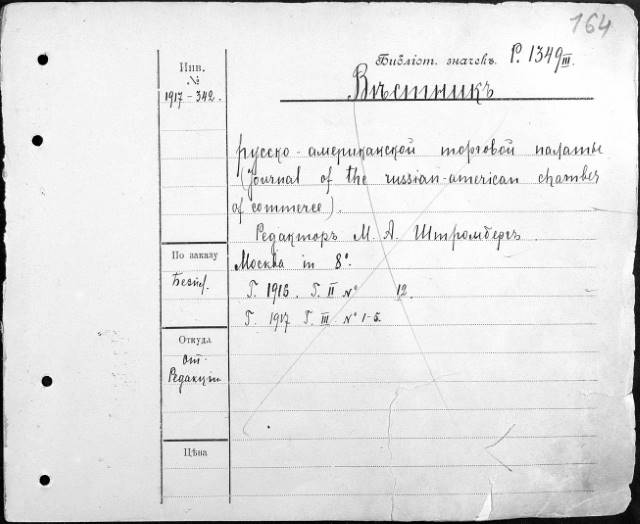 164
Библіот. значекъ. P. 1349 III.
Инв.
№
1917-342.
Вѣстникъ
русско-американской торговой палаты
(Journal of the russian-american chamber
of commerce).
Редакторъ М. А. Штромбергъ.
По заказу
Москва in 8°.
Г. 1916. Т. II № 12.
Г. 1917 Т. III № 1-5.
Откуда
от-
Редакціи
Цѣна